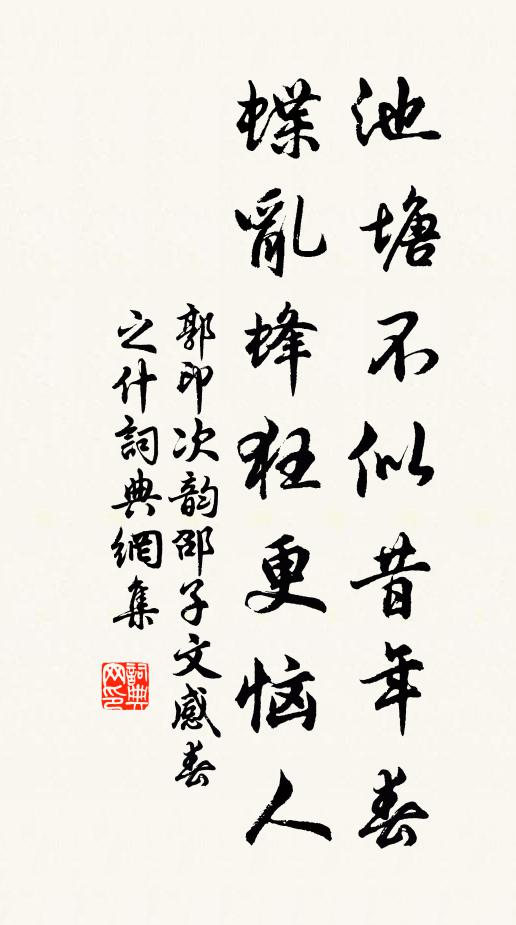 池塘不似昔年春
蝶亂蜂狂更恼人
郭印次韵邵子文感春
之什詞典網集
詞典网印